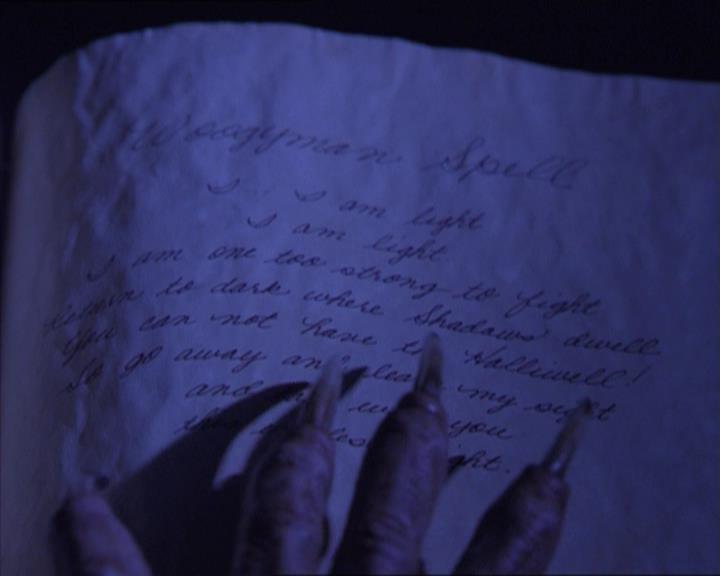 Woogyman Spell
I I am light
I am light
I am one too strong to fight
Return to dark where Shadows dwell
You can not have Halliwell!
So go away and my sight
and you